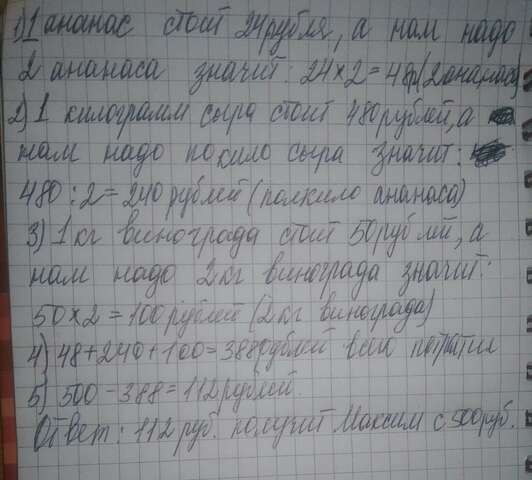 1) 1 ананас стоит 24рубля, а нам надо
2 ананаса значит: 24×2=48р(2ананаса)
2) 1 килограмм сыра стоит 480рублей, а
нам надо покило сыра значит:
480:2=240рублей (полкило ананаса)
3) 1кг винограда стоит 50рублей, а
нам надо 2кг винограда значит:
50×2=100рублей (2кг винограда)
4) 48+240+100=388рублей всего потратил
5) 500-388=112рублей.
Ответ: 112руб. получит Максим с 500руб.